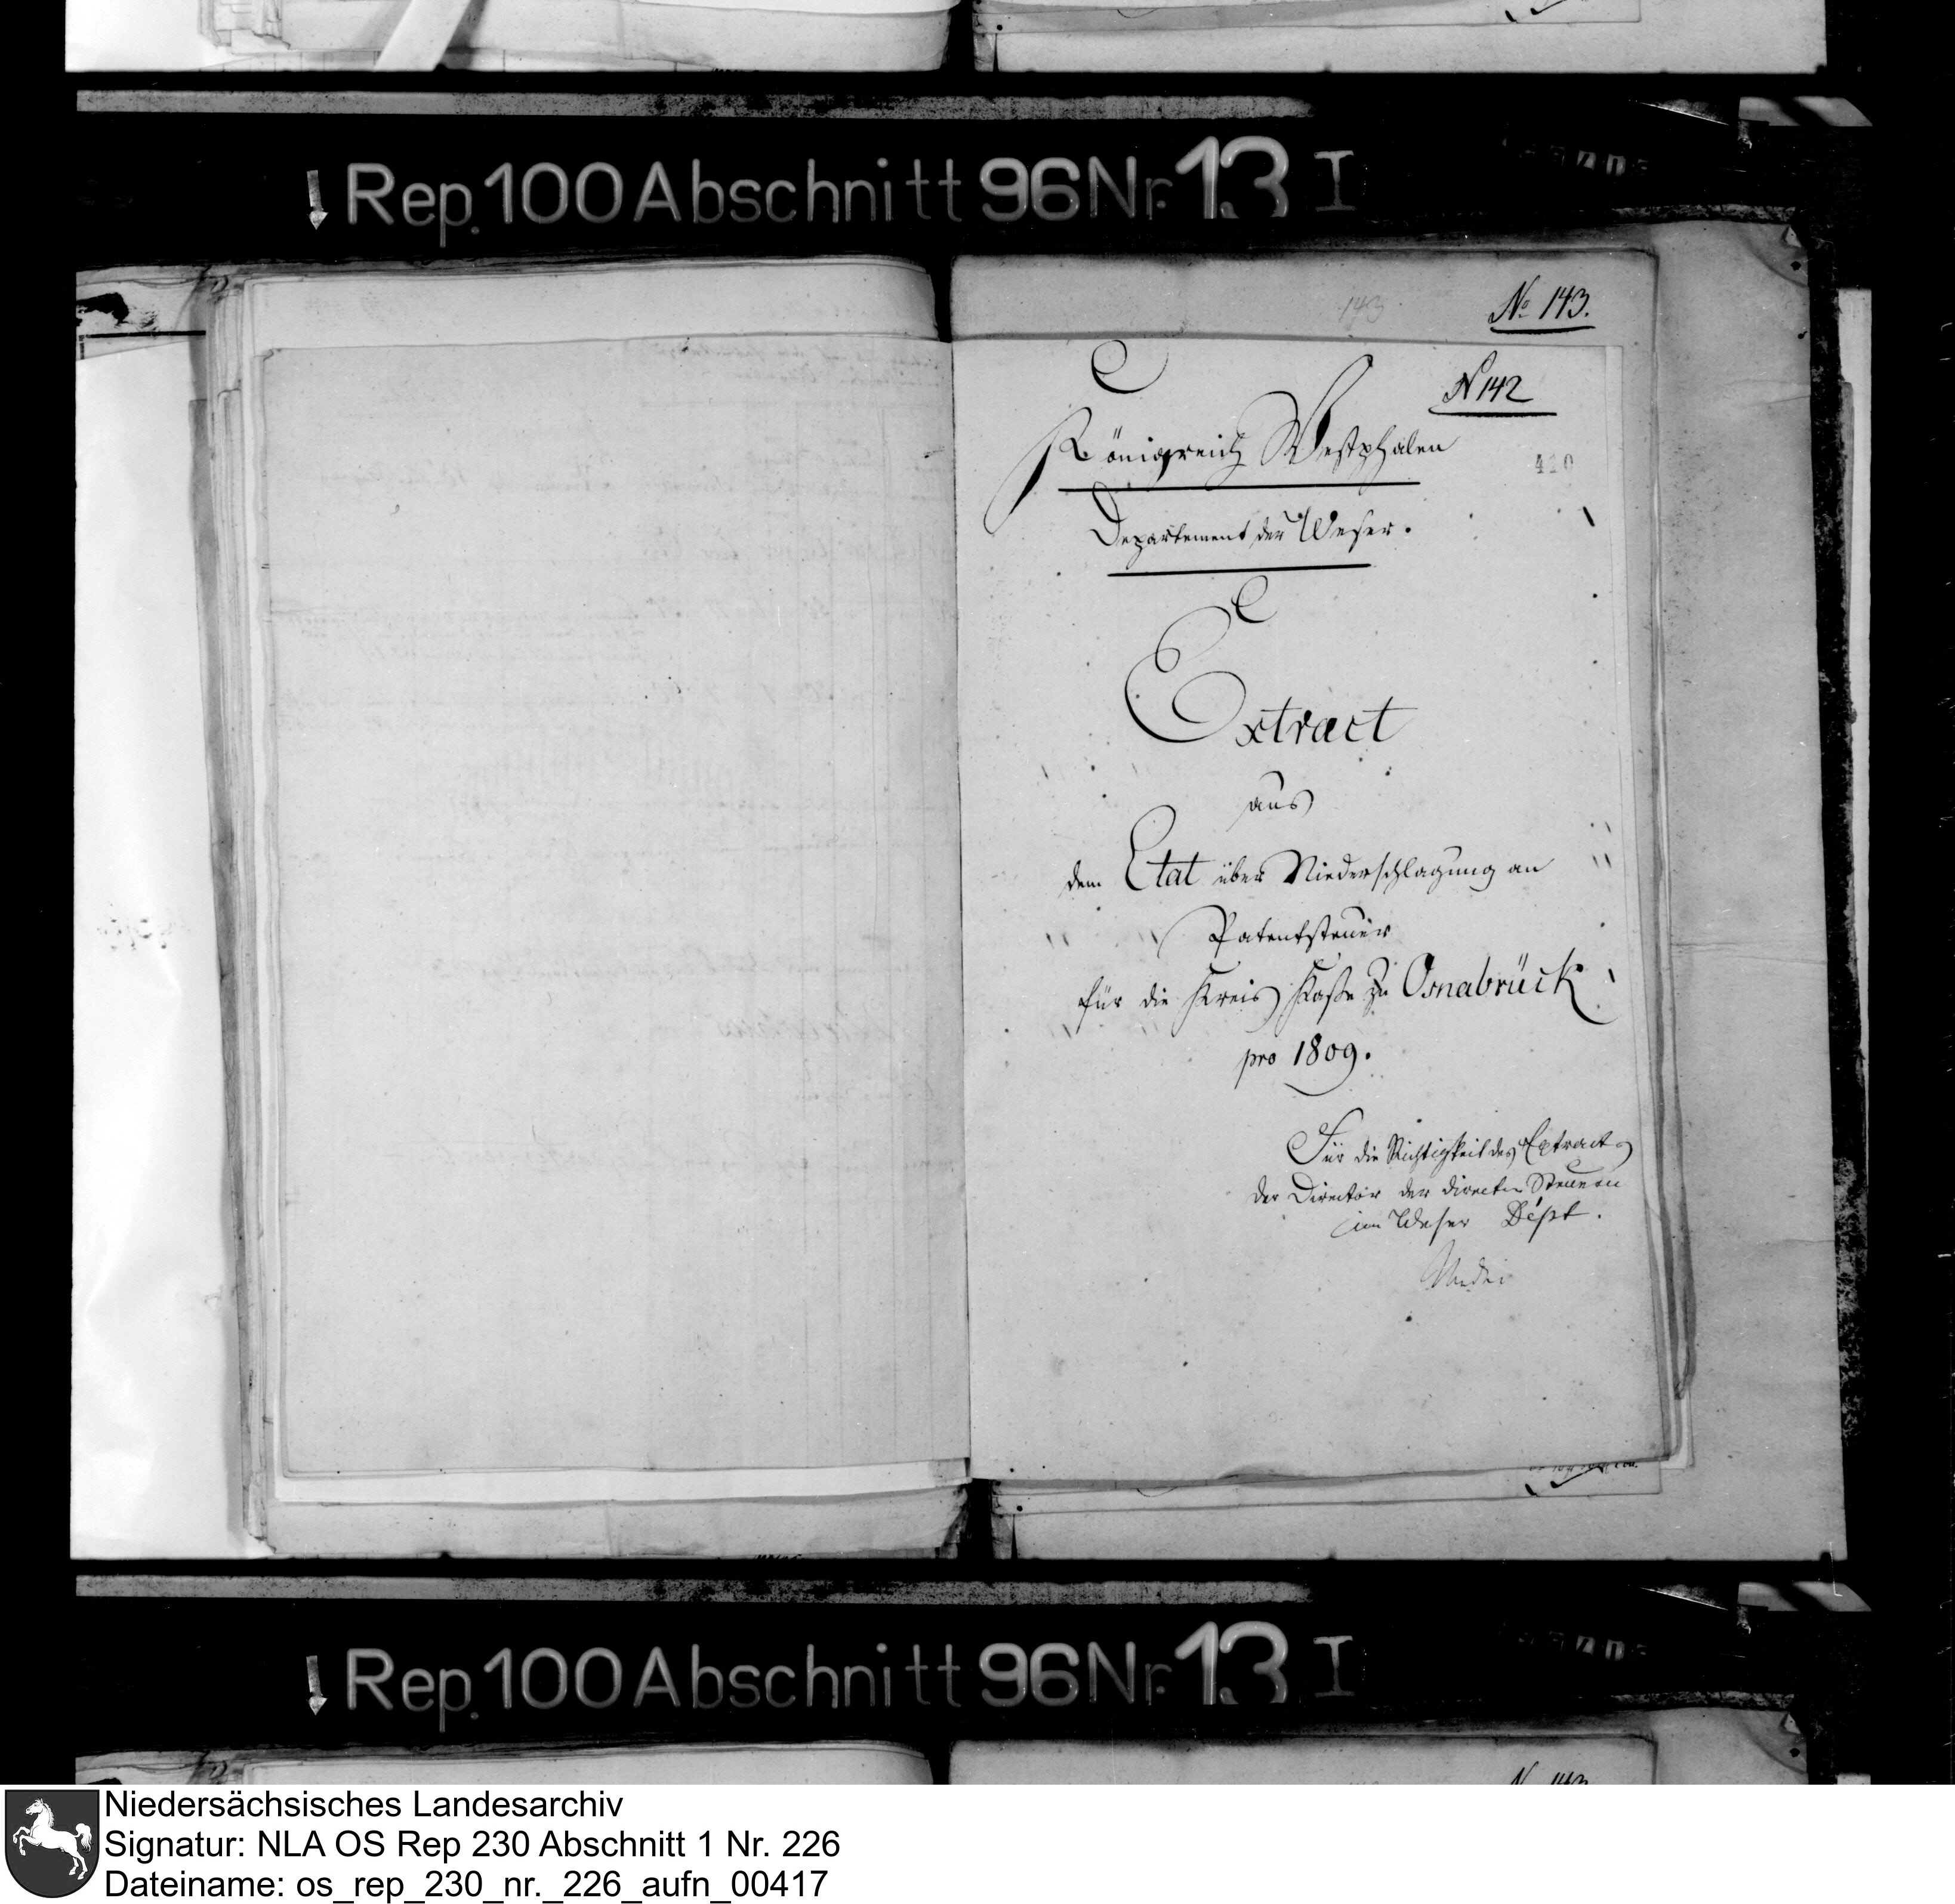 Rep. 100 Abschnitt 96 Nr. 13 I
143
No 143.
N 142
Königreich Westphalen
410
Departement der Weser.
Extract
aus
dem Etat über Niederschlagung an
Patentsteuer
für die Kreis Kasse zu Osnabrück
pro 1809.
Für die Richtigkeit des Extracts
der Director der directen Steuern
im Weser Dépt.
Rep. 100 Abschnitt 96 Nr. 13 I
Niedersächsisches Landesarchiv
Signatur: NLA OS Rep 230 Abschnitt 1 Nr. 226
Dateiname: os_rep_230_nr._226_aufn_00417